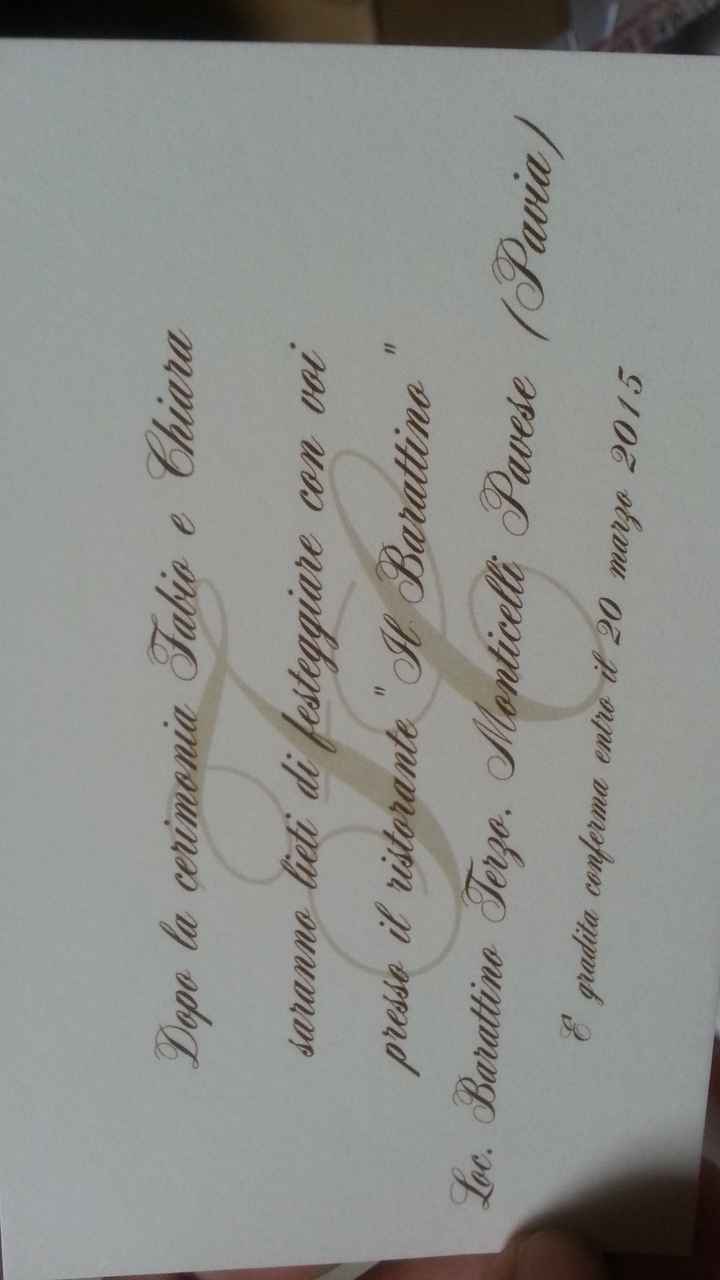 Dopo la cerimonia Fabio e Chiara
saranno lieti di festeggiare con voi
presso il ristorante " Il Barattino "
Loc. Barattino Terzo. Monticelli Pavese (Pavia)
E gradita conferma entro il 20 marzo 2015
F C